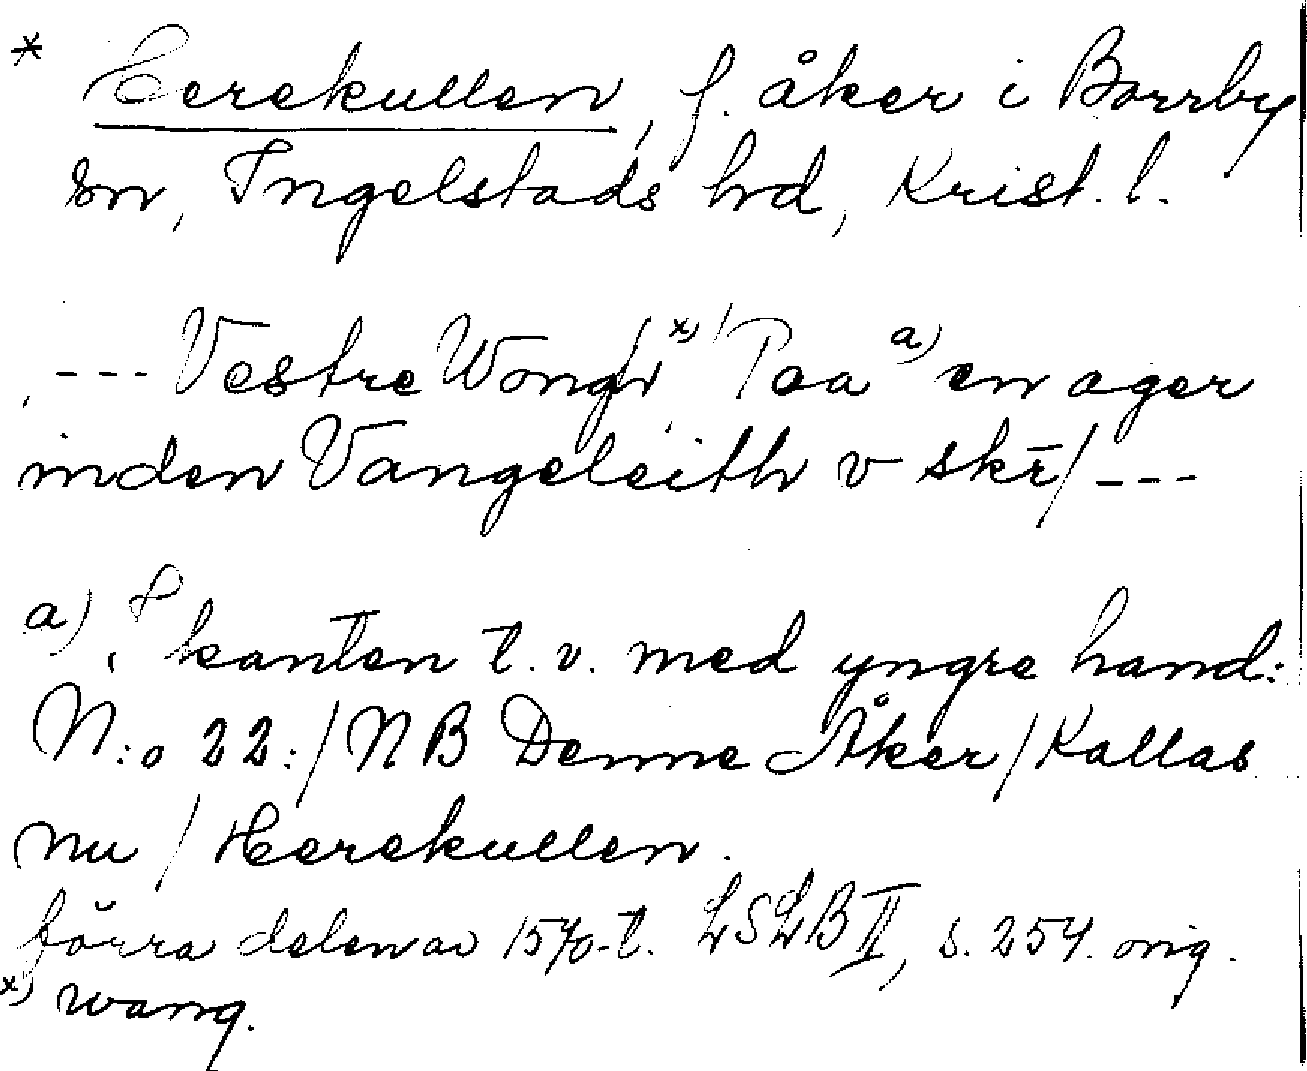 * Herekullen, f. åker i Borrby
sn, Ingelstads hd, Krist. l.
--- Vestre Wongh x) / Paa a) en ager
inden Vangeleith v skr̄ / ---
a) I kanten t. v. med yngre hand:
N:o 22: / NB Denne Åker / Kallas
nu / Herekullen.
förra delen av 1570-t. LSLB II, s. 254. orig.
x) wang.